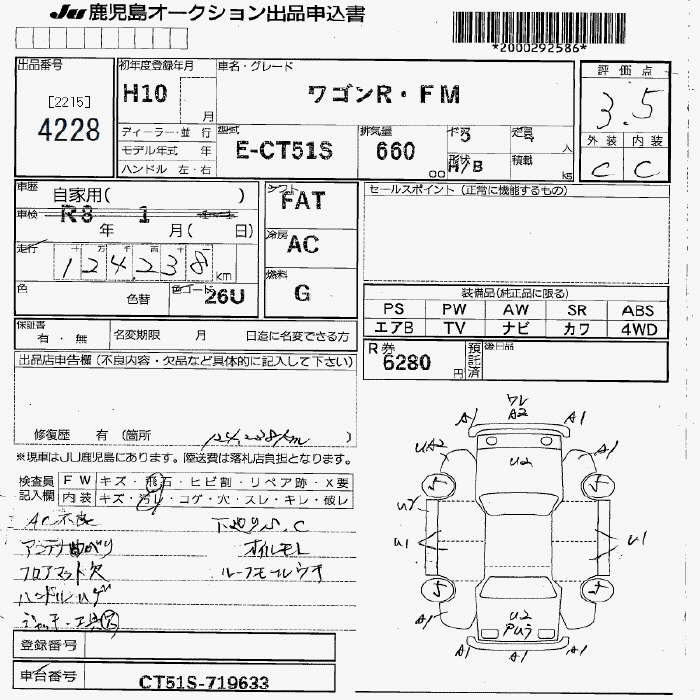 JU 鹿児島オークション出品申込書
*2000292586*
出品番号
[2215]
4228
初年度登録年月
H10 月
車名・グレード
ワゴンR・FM
評価点
3.5
ディーラー・並行
モデル年式 年
ハンドル 左・右
型式
E-CT51S
排気量
660
cc
ドア
5
定員
4
人
形状
M/B
積載
kg
外装 内装
C C
車歴
自家用( )
車検
R8 年 1 月( 日)
走行
十 万 千 百 十
124,238 km
色
色替
色コード
26U
シフト
FAT
冷房
AC
燃料
G
セールスポイント (正常に機能するもの)
装備品(純正品に限る)
PS PW AW SR ABS
エアB TV ナビ カワ 4WD
保証書
有・無
名変期限 月 日迄に名変できる方
R券
6280
円
預託済
後日品
出品店申告欄 (不良内容・欠品など具体的に記入して下さい)
修復歴 有 (箇所 124,238km )
※現車はJU鹿児島にあります。陸送費は落札店負担となります。
検査員記入欄
FW キズ・飛石・ヒビ割・リペア跡・X要
内装 キズ・汚れ・コゲ・穴・スレ・キレ・破レ
AC不良
アンテナ曲がり
オイルモレ
フロアマット欠
ルーフモールウキ
ハンドルハゲ
ジャッキ・工具
ワレ
A2
A1 A1
UA2 A1
U2
5 5
U1 U1
5 5
A1 A1
U2
A1 A1
登録番号
車台番号
CT51S-719633